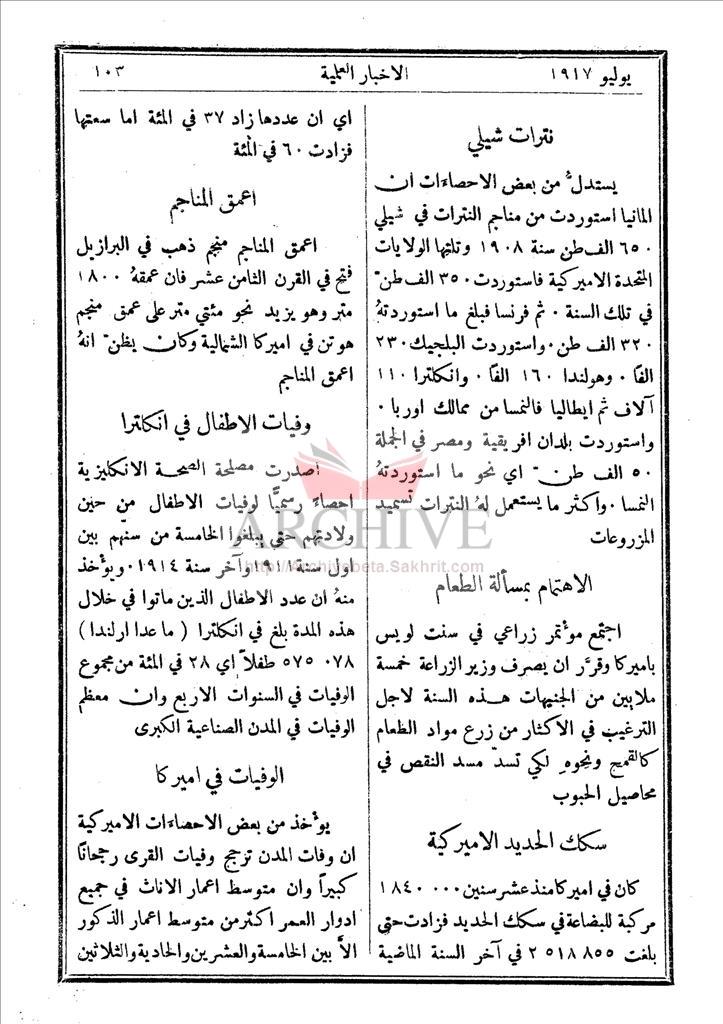 يوليو ١٩١٧
الاخبار العلمية
١٠٣
نترات شيلي
يستدلُّ من بعض الاحصاءات ان
المانيا استوردت من مناجم النترات في شيلي
٦٥٠ الف طن سنة ١٩٠٨ وتلتها الولايات
المتحدة الاميركية فاستوردت ٣٥٠ الف طن
في تلك السنة . ثم فرنسا فبلغ ما استوردتهُ
٣٢٠ الف طن . واستوردت البلجيك ٢٣٠
الفاً . وهولندا ١٦٠ الفاً . وانكلترا ١١٠
آلاف ثم ايطاليا فالنمسا من ممالك اوربا .
واستوردت بلدان افريقية ومصر في الجملة
٥٠ الف طن اي نحو ما استوردتهُ
النمسا . واكثر ما يستعمل لهُ النترات تسميد
المزروعات
الاهتمام بمسألة الطعام
اجتمع موٴتمر زراعي في سنت لويس
باميركا وقرَّر ان يصرف وزير الزراعة خمسة
ملايين من الجنيهات هذه السنة لاجل
الترغيب في الاكثار من زرع مواد الطعام
كالقمح ونحوهِ لكي تسدّ مسد النقص في
محاصيل الحبوب
سكك الحديد الاميركية
كان في اميركا منذ عشر سنين ١٨٤٠٠٠٠
مركبة للبضاعة في سكك الحديد فزادت حتى
بلغت ٢٥١٨٨٥٥ في آخر السنة الماضية
اي ان عددها زاد ٣٧ في المئة اما سعتها
فزادت ٦٠ في المئة
اعمق المناجم
اعمق المناجم منجم ذهب في البرازيل
فتح في القرن الثامن عشر فان عمقهُ ١٨٠٠
متر وهو يزيد نحو مئتي متر على عمق منجم
هوتن في اميركا الشمالية وكان يظنّ انهُ
اعمق المناجم
وفيات الاطفال في انكلترا
اصدرت مصلحة الصحة الانكليزية
احصاءً رسميًّا لوفيات الاطفال من حين
ولادتهم حتى يبلغوا الخامسة من سنّهم بين
اول سنة ١٩١١ وآخر سنة ١٩١٤ . ويوٴخذ
منهُ ان عدد الاطفال الذين ماتوا في خلال
هذه المدة بلغ في انكلترا ( ما عدا ارلندا )
٥٧٥٠٧٨ طفلاً اي ٢٨ في المئة من مجموع
الوفيات في السنوات الاربع وان معظم
الوفيات في المدن الصناعية الكبرى
الوفيات في اميركا
يوٴخذ من بعض الاحصاءات الاميركية
ان وفات المدن ترجح وفيات القرى رجحاناً
كبيراً وان متوسط اعمار الاناث في جميع
ادوار العمر اكثر من متوسط اعمار الذكور
الاَّ بين الخامسة والعشرين والحادية والثلاثين
ARCHIVE
http://Archivebeta.Sakhrit.com